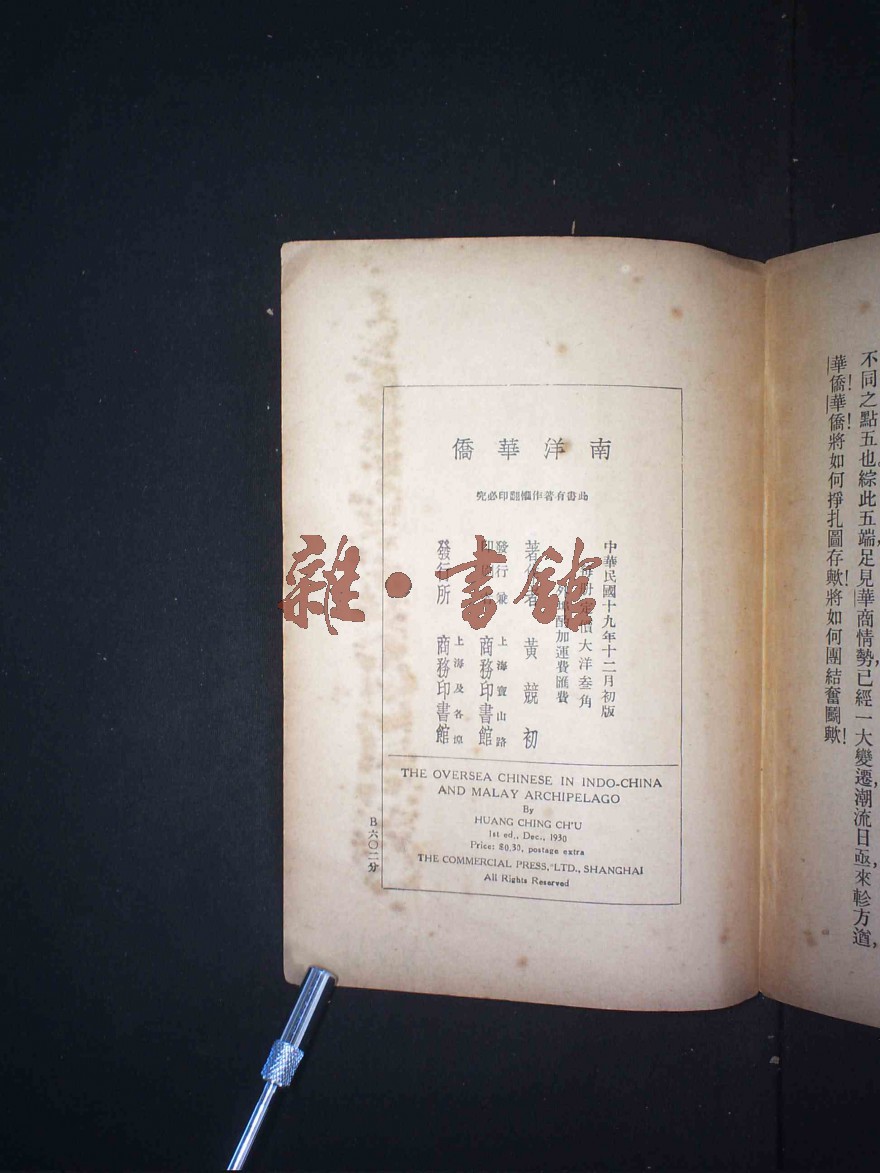 不同之點五也綜此五端足見華商情勢已經一大變遷,潮流日亟,來軫方遒,
華僑!華僑!將如何掙扎圖存歟!將如何團結奮鬬歟!
南洋華僑
此書有著作權翻印必究
中華民國十九年十二月初版
每冊定價大洋叁角
外埠酌加運費匯費
著作者 黃競初
發行兼印刷者 上海寶山路 商務印書館
發行所 上海及各埠 商務印書館
THE OVERSEA CHINESE IN INDO-CHINA
AND MALAY ARCHIPELAGO
By
HUANG CHING CH'U
1st ed., Dec., 1930
Price: $0.30, postage extra
THE COMMERCIAL PRESS, LTD., SHANGHAI
All Rights Reserved
B六〇二分
雜・書館